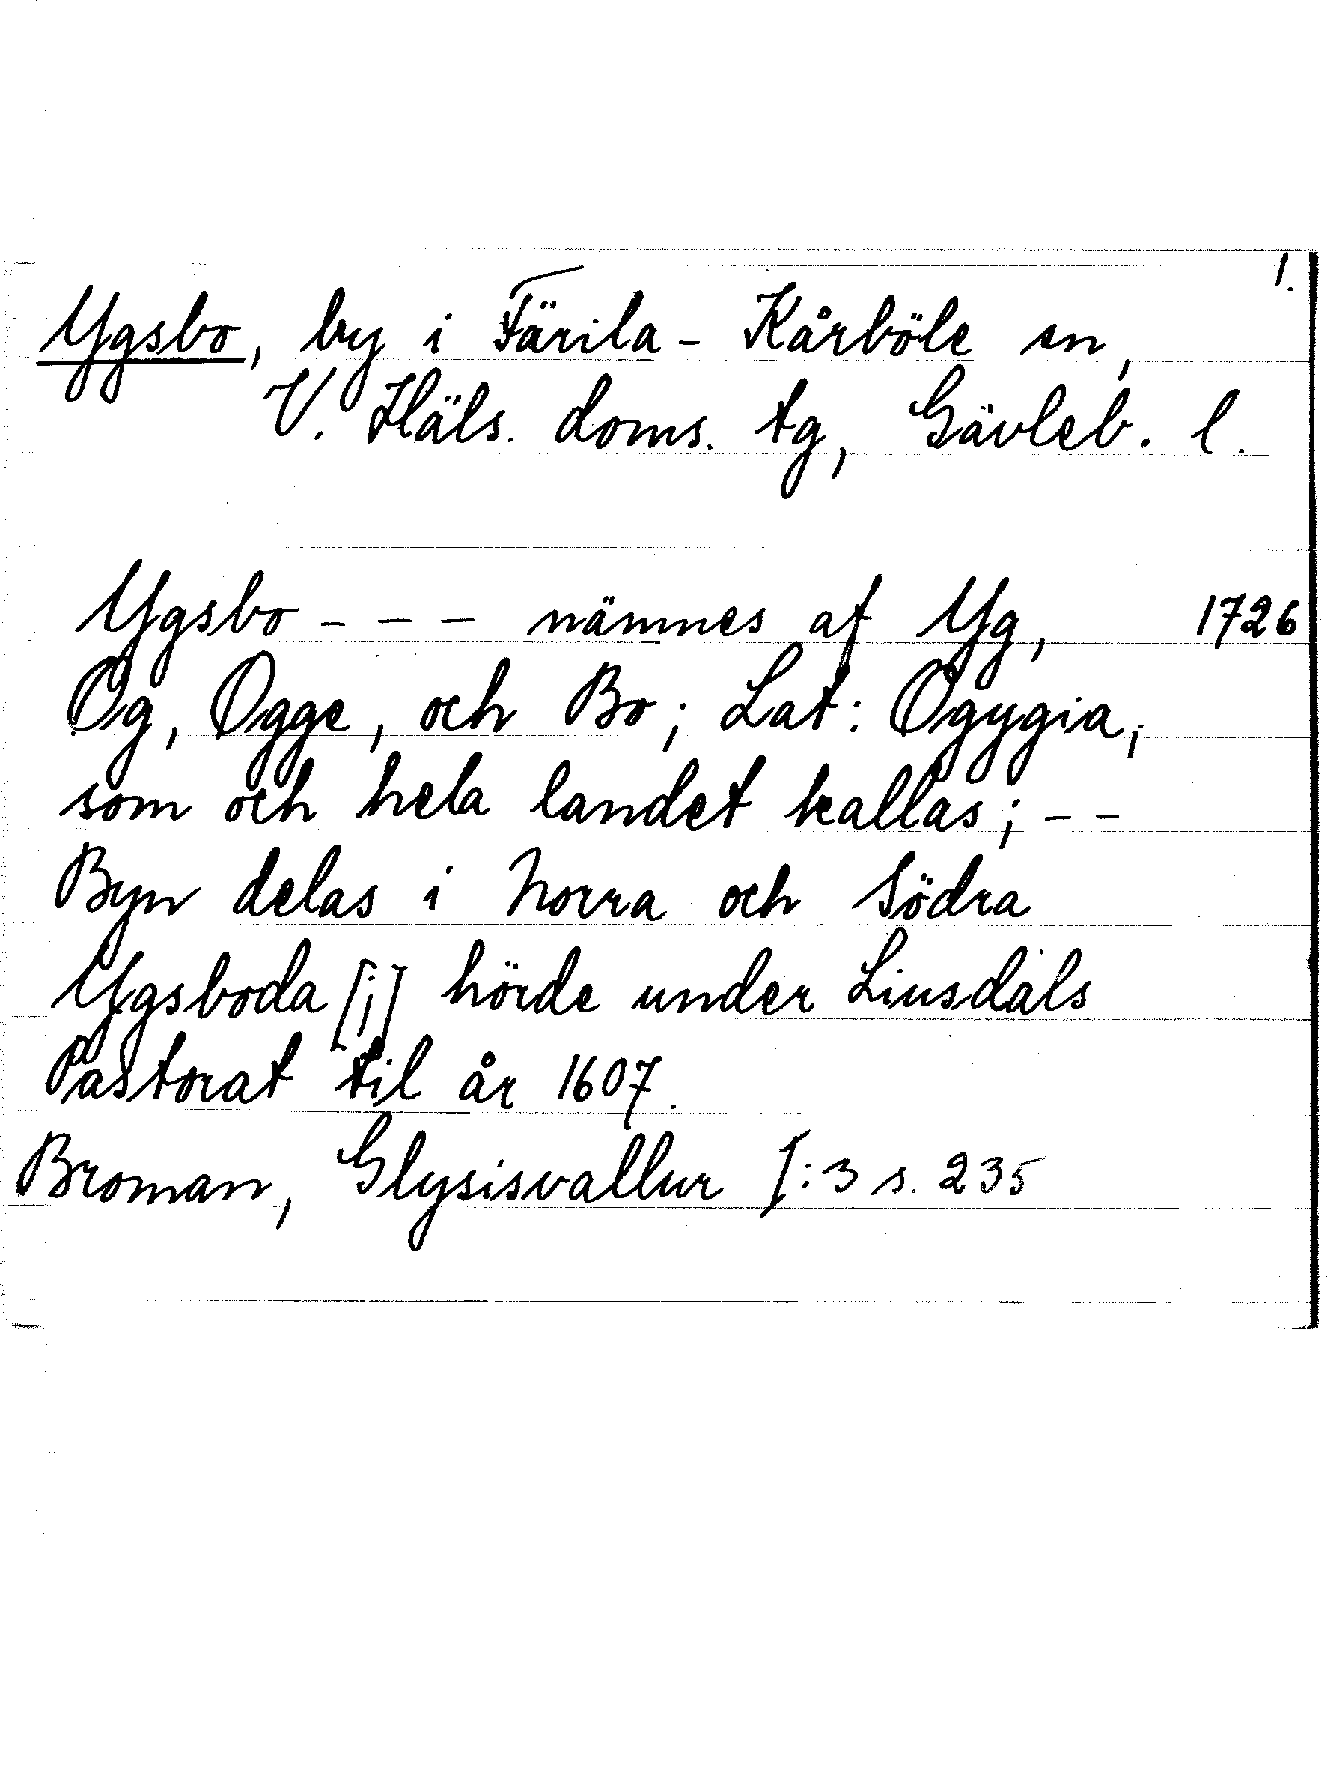 1.
Ygsbo, by i Färila - Kårböle sn,
V. Häls. doms. tg, Gävleb. l.
Ygsbo - - - nämnes af Yg, 1726
Og, Ogge, och Bo; Lat: Ogygia,
som och hela landet kallas; - -
Byn delas i Norra och Södra
Ygsboda [;] hörde under Liusdals
Pastorat til år 1607.
Broman, Glysisvallur I:3 s. 235